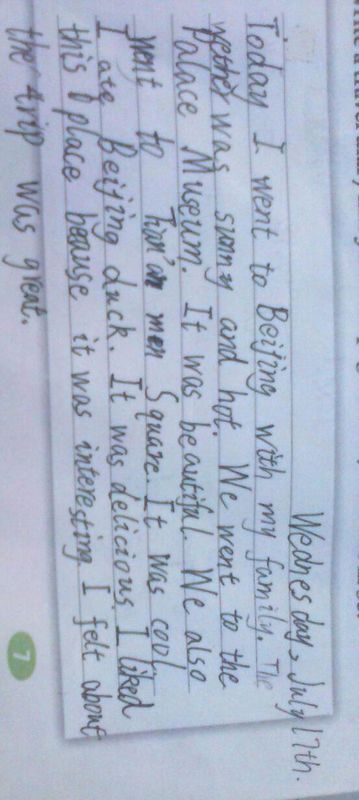 Wednesday, July 17th.
Today I went to Beijing with my family. The
wether was sunny and hot. We went to the
Palace Museum. It was beautiful. We also
went to Tian'an men Square. It was cool
I ate Beijing duck. It was delicious I liked
this place beause it was interesting. I felt about
the trip was great.
7